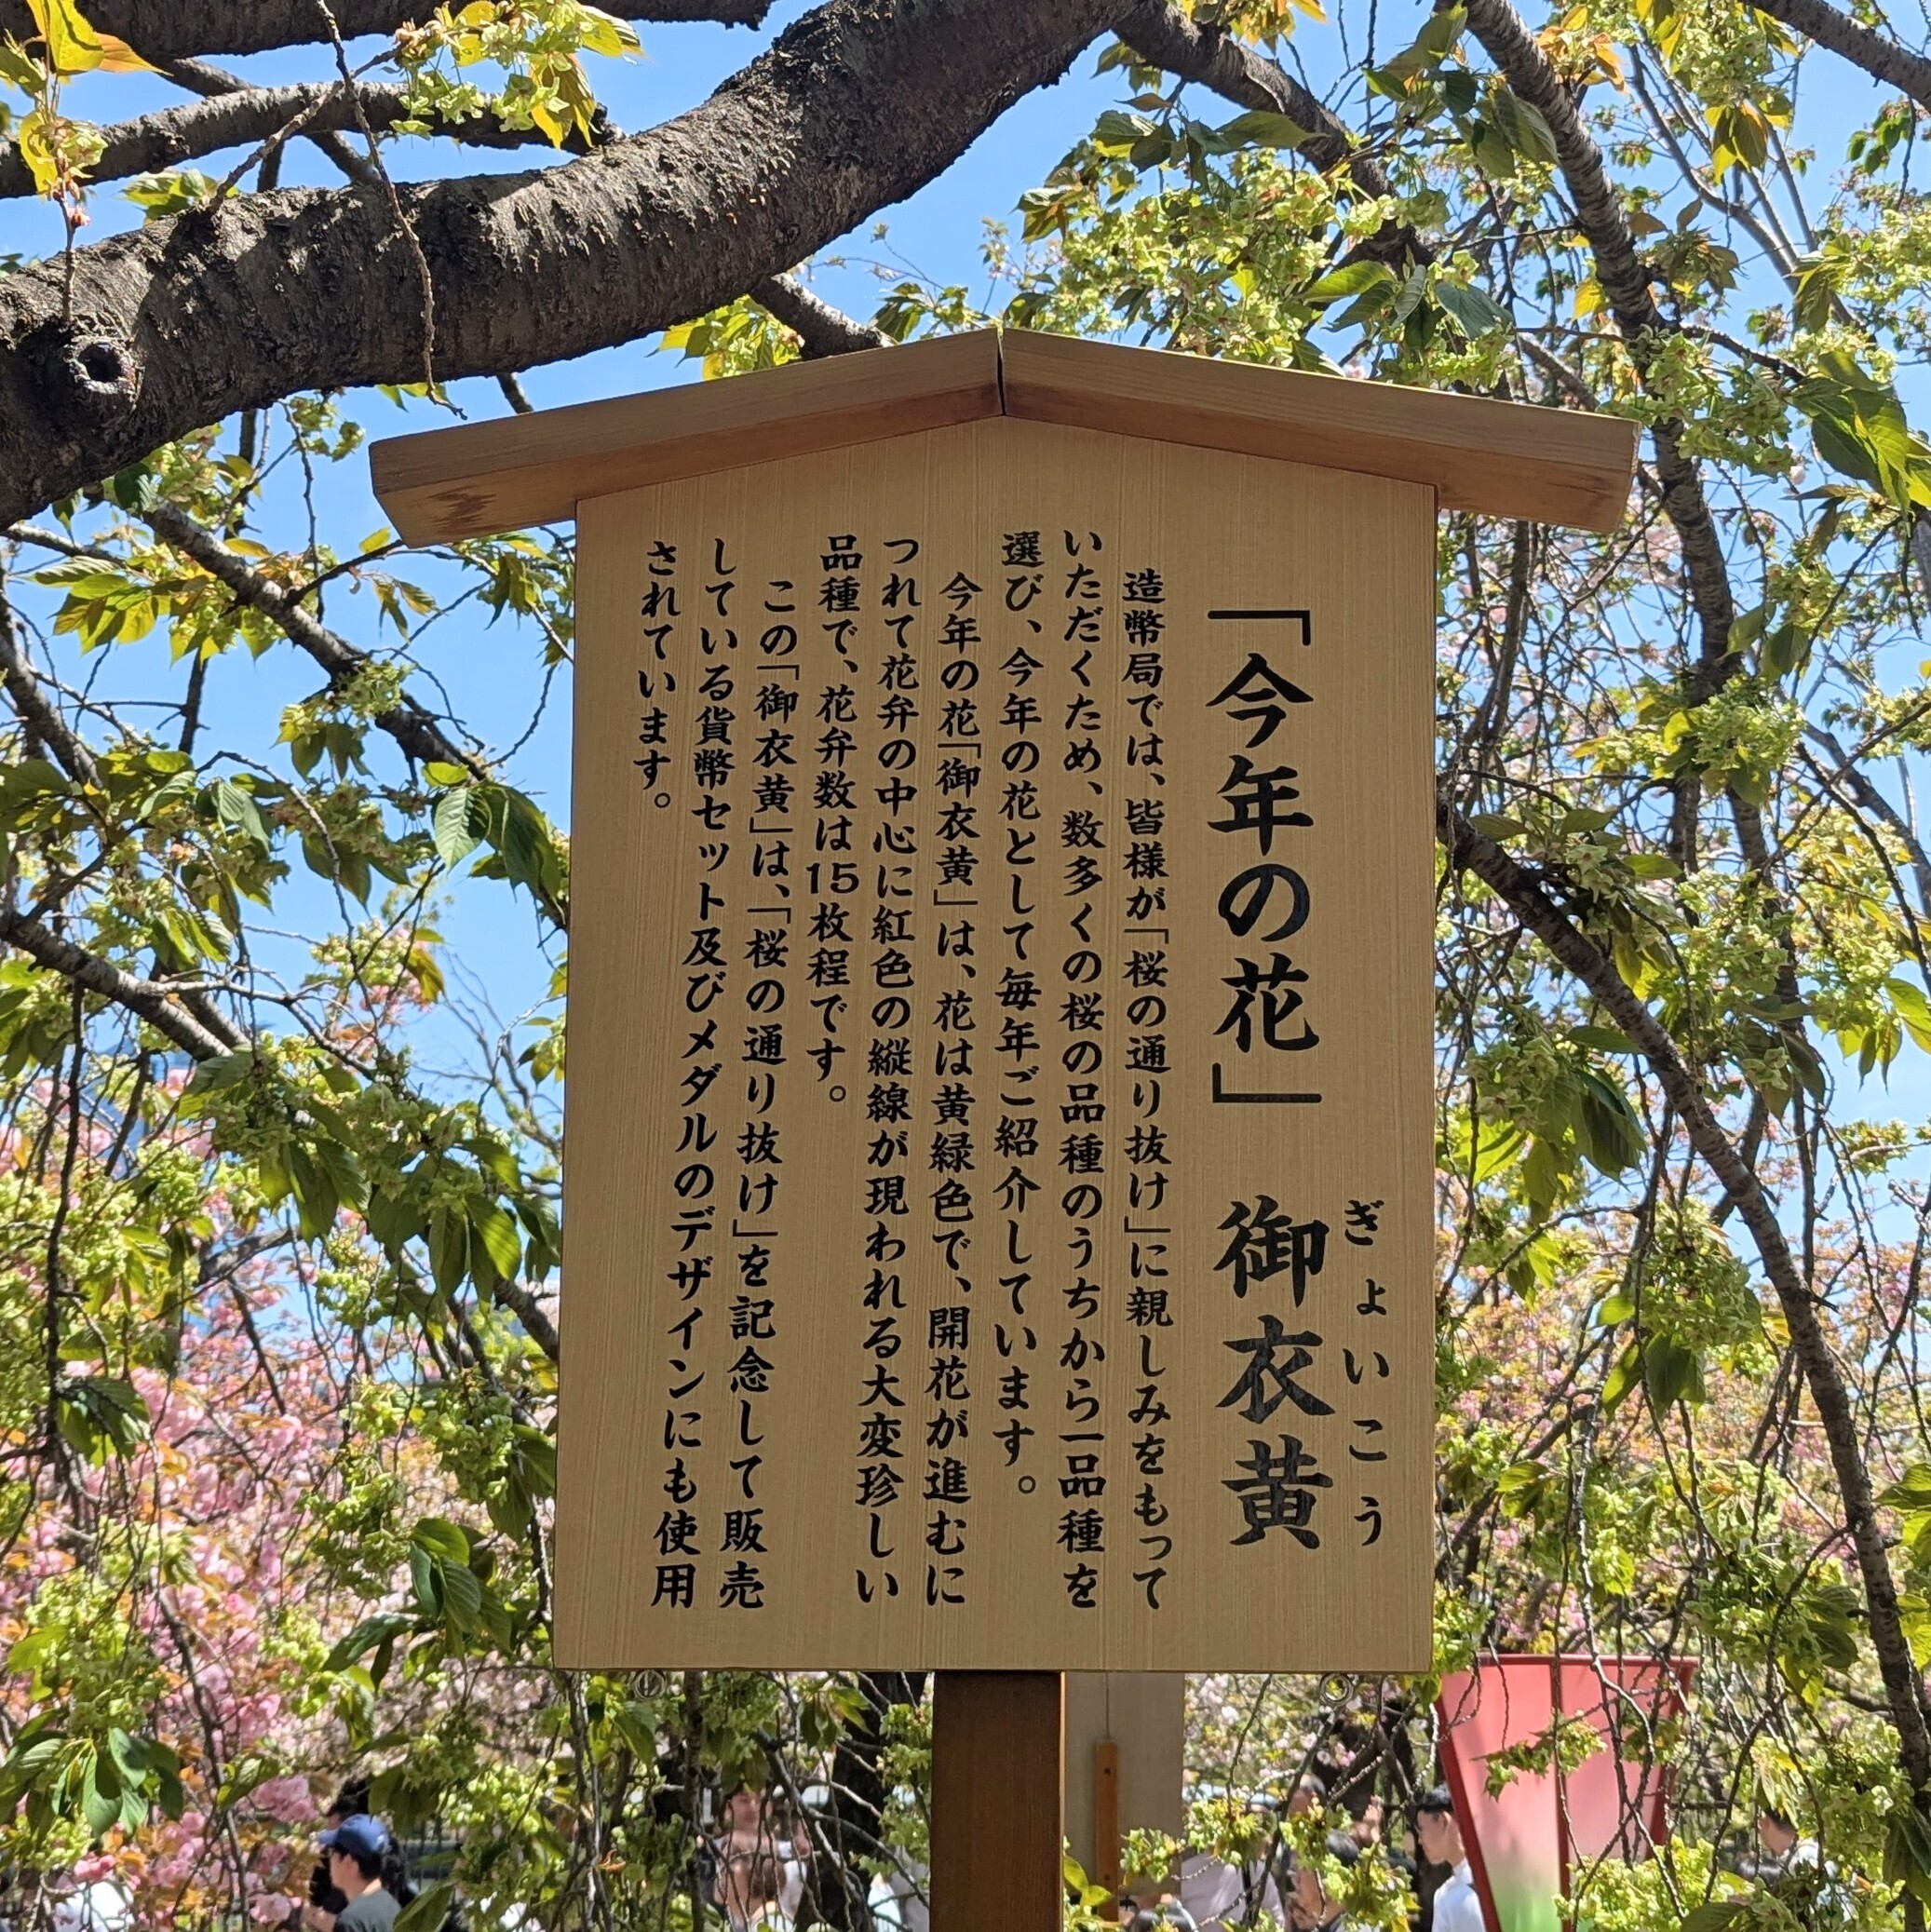 「今年の花」 御衣黄
ぎょいこう
造幣局では、皆様が「桜の通り抜け」に親しみをもって
いただくため、数多くの桜の品種のうちから一品種を
選び、今年の花として毎年ご紹介しています。
今年の花「御衣黄」は、花は黄緑色で、開花が進むに
つれて花弁の中心に紅色の縦線が現われる大変珍しい
品種で、花弁数は15枚程です。
この「御衣黄」は、「桜の通り抜け」を記念して販売
している貨幣セット及びメダルのデザインにも使用
されています。